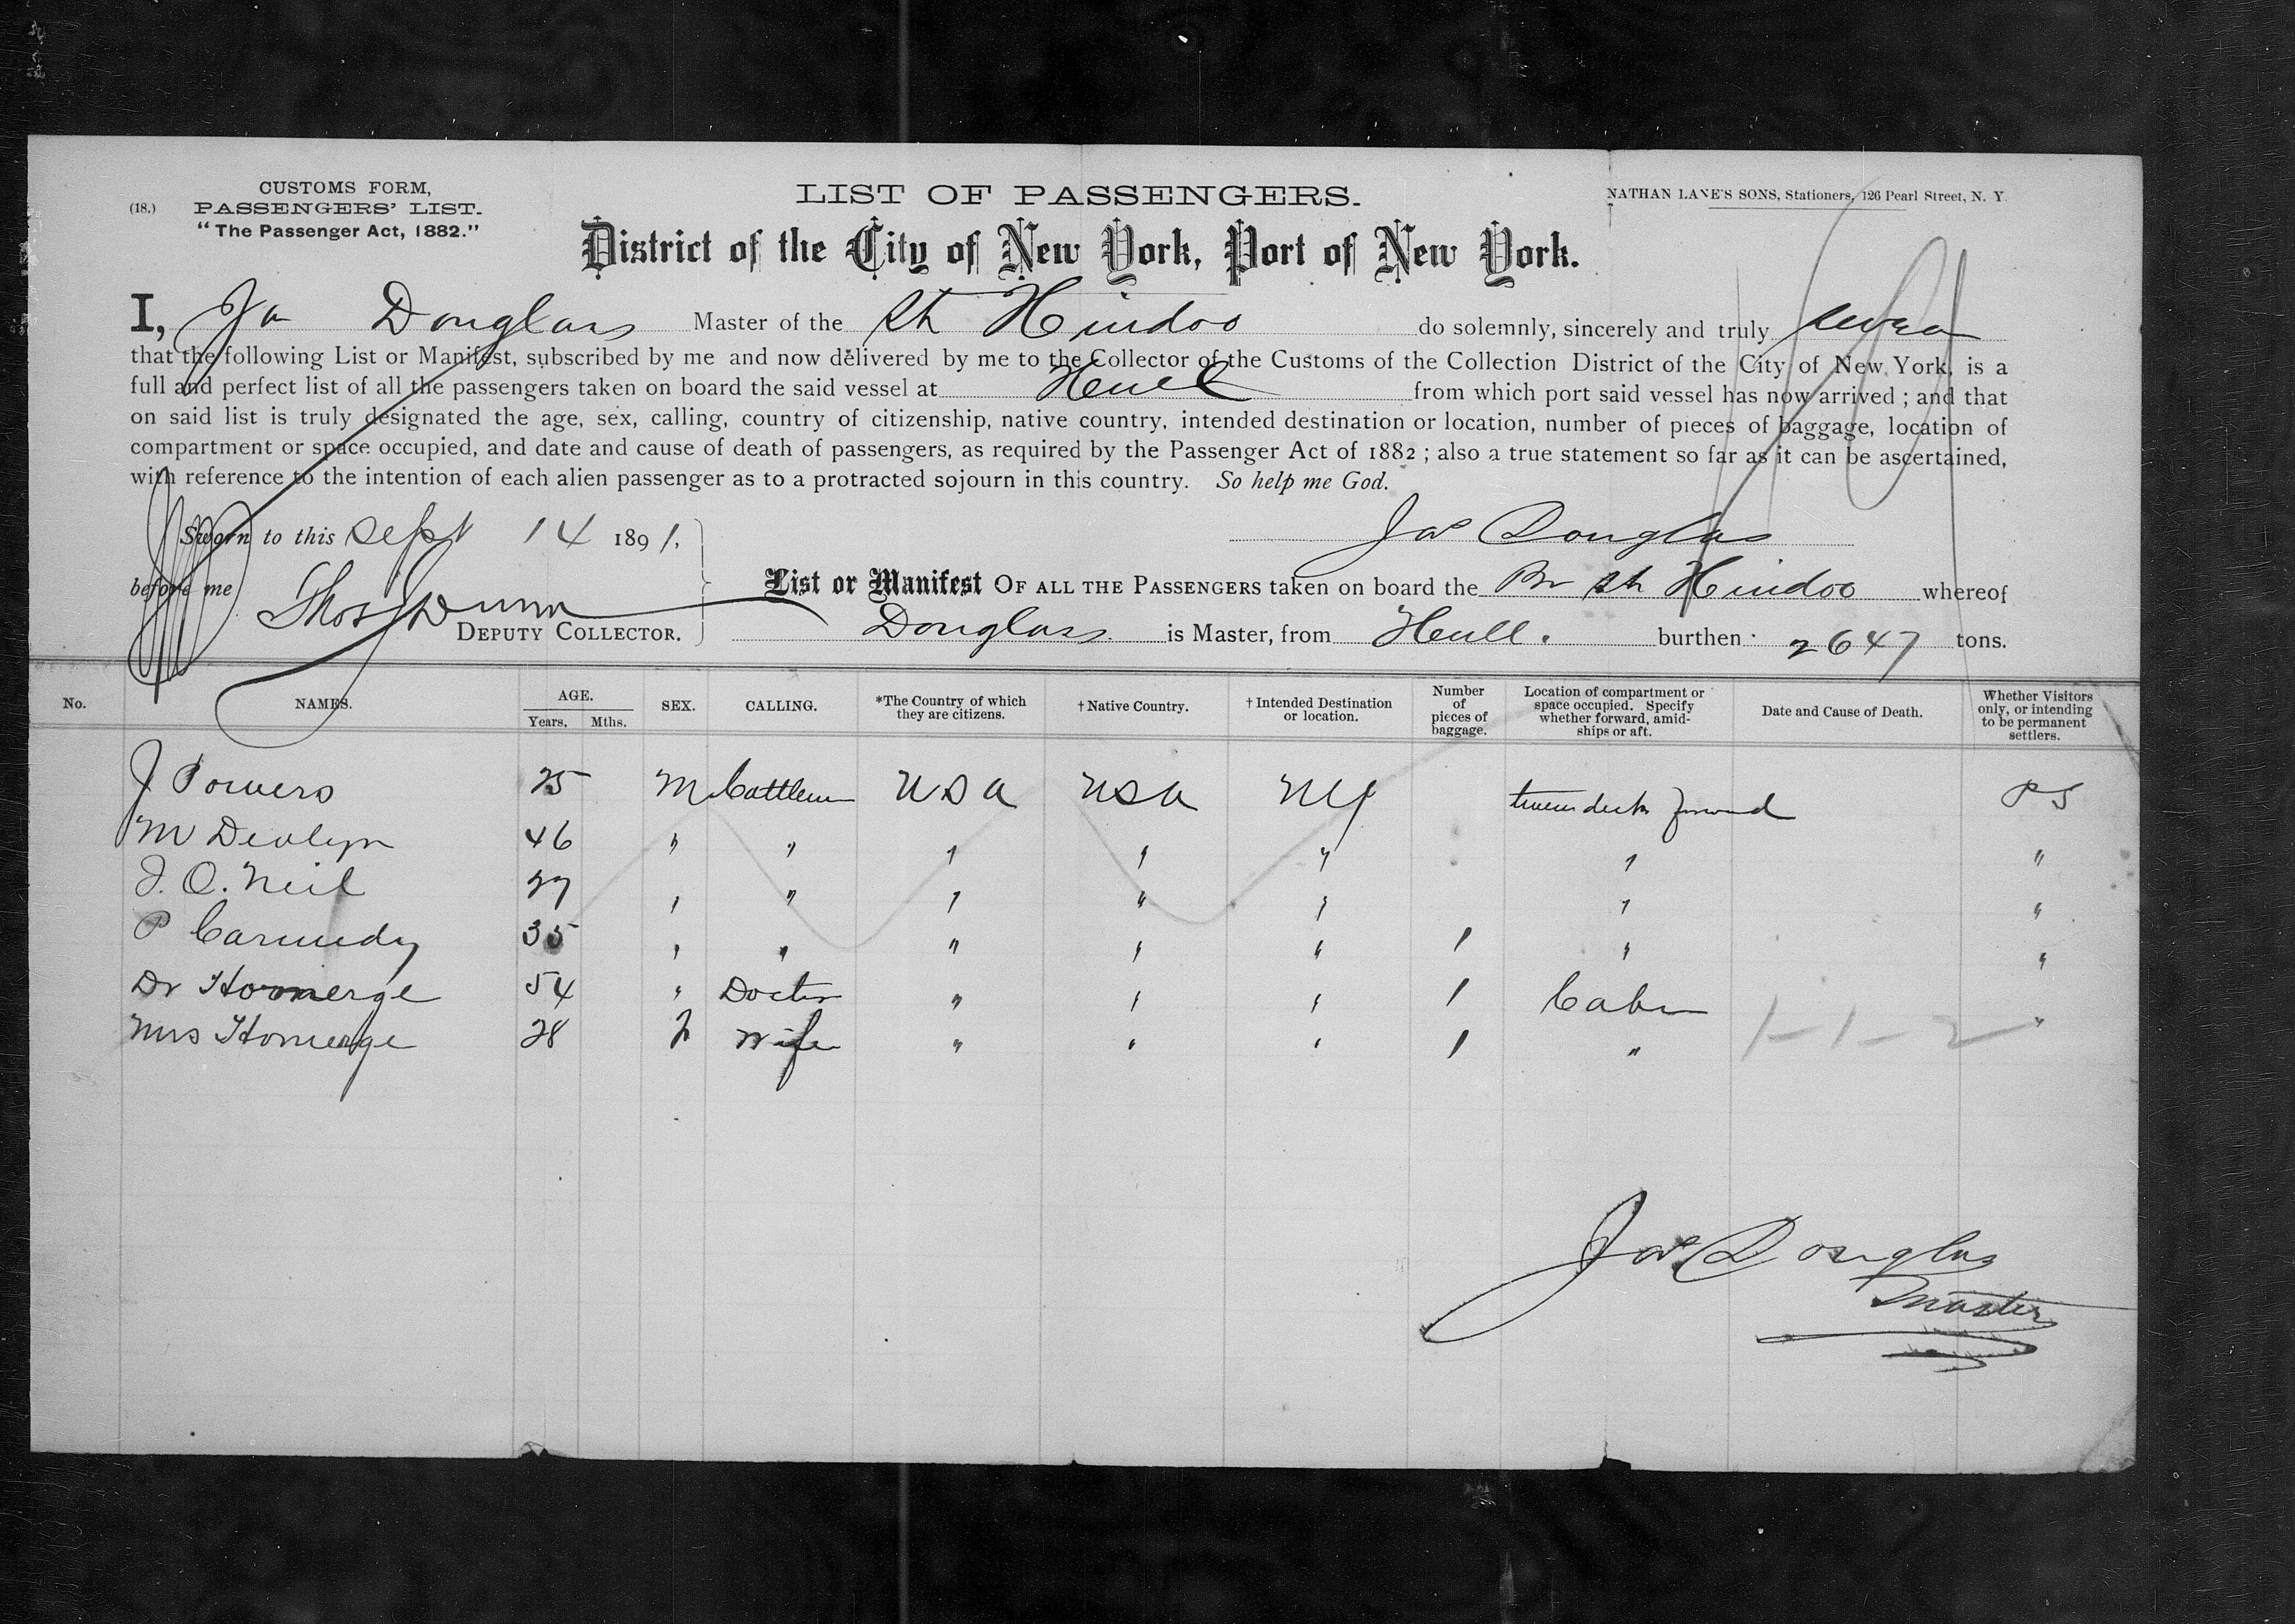 (18.) CUSTOMS FORM,
PASSENGERS' LIST.
"The Passenger Act, 1882."
LIST OF PASSENGERS.
NATHAN LANE'S SONS, Stationers, 126 Pearl Street, N. Y.
District of the City of New York, Port of New York.
I, Jas Douglass Master of the Sh Hindoo do solemnly, sincerely and truly swear
that the following List or Manifest, subscribed by me and now delivered by me to the Collector of the Customs of the Collection District of the City of New York, is a
full and perfect list of all the passengers taken on board the said vessel at Hull from which port said vessel has now arrived; and that
on said list is truly designated the age, sex, calling, country of citizenship, native country, intended destination or location, number of pieces of baggage, location of
compartment or space occupied, and date and cause of death of passengers, as required by the Passenger Act of 1882; also a true statement so far as it can be ascertained,
with reference to the intention of each alien passenger as to a protracted sojourn in this country. So help me God.
Sworn to this Sept 14 1891,
Jas Douglas
before me
Thos Dunn
DEPUTY COLLECTOR.
List or Manifest OF ALL THE PASSENGERS taken on board the Br Sh Hindoo whereof
Douglass is Master, from Hull. burthen 2647 tons.
No. NAMES. AGE. Years. Mths. SEX. CALLING. *The Country of which they are citizens. † Native Country. † Intended Destination or location. Number of pieces of baggage. Location of compartment or space occupied. Specify whether forward, amidships or aft. Date and Cause of Death. Whether Visitors only, or intending to be permanent settlers.
J Powers 25 M Cattlem USA USA NY tween deck forward PS
M Devlyn 46 " " " " " " "
J. O. Neil 27 " " " " " " "
P Carmedy 35 " " " " " 1 " "
Dr Homerge 54 " Doctor " " " 1 Cabin
Mrs Homerge 28 F Wife " " " 1 " 1-1-2 "
Jas Douglas
Master